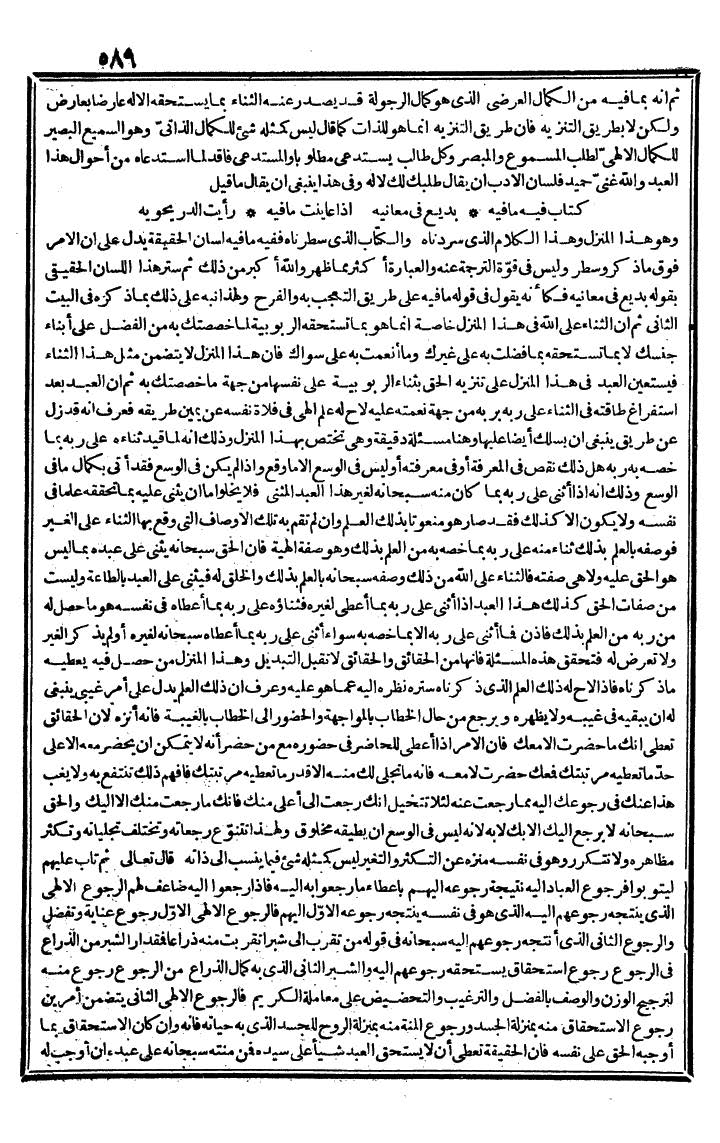 ٥٨٩
ثم انه بما فيه من الكمال العرضى الذى هو كمال الرجولة قد يصدر عنه الثناء بما يستحقه الاله عارضا بعارض
ولكن لا بطريق التنزيه فان طريق التنزيه انما هو للذات كما قال ليس كمثله شئ للكمال الذاتىّ وهو السميع البصير
للكمال الالهىّ لطلب المسموع والمبصر وكل طالب يستدعى مطلوبا والمستدعى فاقد لما استدعاه من أحوال هذا
العبد والله غنىّ حميد فلسان الادب ان يقال طلبك لك لا له وفى هذا ينبغى ان يقال ما قيل
كتاب فيه ما فيه * بديع فى معانيه اذا عاينت ما فيه * رأيت الدر يحويه
وهو هذا المنزل وهذا الكلام الذى سردناه والكتاب الذى سطرناه ففيه ما فيه لسان الحقيقة يدل على ان الامر
فوق ما ذكر وسطر وليس فى قوّة الترجمة عنه والعبارة أكثر مما ظهر والله أكبر من ذلك ثم ستر هذا اللسان الحقيقى
بقوله بديع فى معانيه فكأنه يقول فى قوله ما فيه على طريق التعجب به والفرح ولهذا نبه على ذلك بما ذكره فى البيت
الثانى ثم ان الثناء على الله فى هذا المنزل خاصة انما هو بما تستحقه الربوبية لما خصصتك به من الفضل على أبناء
جنسك لا بما تستحقه بما فضلت به على غيرك وما أنعمت به على سواك فان هذا المنزل لا يتضمن مثل هذا الثناء
فيستعين العبد فى هذا المنزل على تنزيه الحق بثناء الربوبية على نفسها من جهة ما خصصتك به ثم ان العبد بعد
استفراغ طاقته فى الثناء على ربه بربه من جهة نعمته عليه لاح له علم الهى فى فلاة نفسه عن يمين طريقه فعرف انه قد زل
عن طريق ينبغى ان يسلك أيضا عليها وهنا مسئلة دقيقة وهى تختص بهذا المنزل وذلك انه لما قيد ثناءه على ربه بما
خصه به ربه هل ذلك نقص فى المعرفة أو فى معرفته أو ليس فى الوسع الا ما وقع واذا لم يكن فى الوسع فقد أتى بكمال ما فى
الوسع وذلك انه اذا أثنى على ربه بما كان منه سبحانه لغير هذا العبد المثنى فلا يخلو اما ان يثنى عليه بما تحققه علما فى
نفسه ولا يكون الا كذلك فقد صار هو منعوتا بذلك العلم وان لم تقم به تلك الاوصاف التى وقع بها الثناء على الغير
فوصفه بالعلم بذلك ثناء منه على ربه بما خصه به من العلم بذلك وهو صفة الهية فان الحق سبحانه يثنى على عبده بما ليس
هو الحق عليه ولا هى صفته فالثناء على الله من ذلك وصفه سبحانه بالعلم بذلك والخلق له فيثنى على العبد بالطاعة وليست
من صفات الحق كذلك هذا العبد اذا أثنى على ربه بما أعطى لغيره فثناؤه على ربه بما أعطاه فى نفسه هو ما حصل له
من ربه من العلم بذلك فاذن فما أثنى على ربه الا بما خصه به سواء أثنى على ربه بما أعطاه سبحانه لغيره أو لم يذكر الغير
ولا تعرض له فتحقق هذه المسئلة فانها من الحقائق والحقائق لا تقبل التبديل وهذا المنزل من حصل فيه يعطيه
ما ذكرناه فاذا لاح له ذلك العلم الذى ذكرناه ستره نظره اليه عما هو عليه وعرف ان ذلك العلم يدل على أمر غيبى ينبغى
له ان يبقيه فى غيبه ولا يظهره ويرجع من حال الخطاب بالمواجهة والحضور الى الخطاب بالغيبة فانه أنزه لان الحقائق
تعطى انك ما حضرت الا معك فان الامر اذا أعطى للحاضر فى حضوره مع من حضر أنه لا يتمكن ان يحضر معه الا على
حدّ ما تعطيه مرتبتك فمعك حضرت لا معه فانه ما تجلى لك منه الا قدر ما تعطيه مرتبتك فافهم ذلك تنتفع به ولا يغب
هذا عنك فى رجوعك اليه مما رجعت عنه لئلا تتخيل انك رجعت الى أعلى منك فانك ما رجعت منك الا اليك والحق
سبحانه لا يرجع اليك الا بك لا به لانه ليس فى الوسع ان يطيقه مخلوق ولهذا تتنوّع رجعاته وتختلف تجلياته وتكثر
مظاهره ولا تتكرر وهو فى نفسه منزه عن التكثر والتغير ليس كمثله شئ فيما ينسب الى ذاته قال تعالى ثم تاب عليهم
ليتوبوا فرجوع العباد اليه نتيجة رجوعه اليهم باعطاء ما رجعوا به اليه فاذا رجعوا اليه ضاعف لهم الرجوع الالهى
الذى ينتجه رجوعهم اليه الذى هو فى نفسه ينتجه رجوعه الاوّل اليهم فالرجوع الالهى الاوّل رجوع عناية وتفضل
والرجوع الثانى الذى أنتجه رجوعهم اليه سبحانه فى قوله من تقرب الى شبرا تقربت منه ذراعا فقدار الشبر من الذراع
فى الرجوع رجوع استحقاق يستحقه رجوعهم اليه والشبر الثانى الذى به كمال الذراع من الرجوع رجوع منه
لترجيح الوزن والوصف بالفضل والترغيب والتحضيض على معاملة الكريم فالرجوع الالهى الثانى يتضمن أمرين
رجوع الاستحقاق منه بمنزلة الجسد ورجوع المنة به منزلة الروح للجسد الذى به حياته فانه وان كان الاستحقاق بما
أوجبه الحق على نفسه فان الحقيقة تعطى أن لا يستحق العبد شيأ على سيده فمن منته سبحانه على عبده ان أوجب له